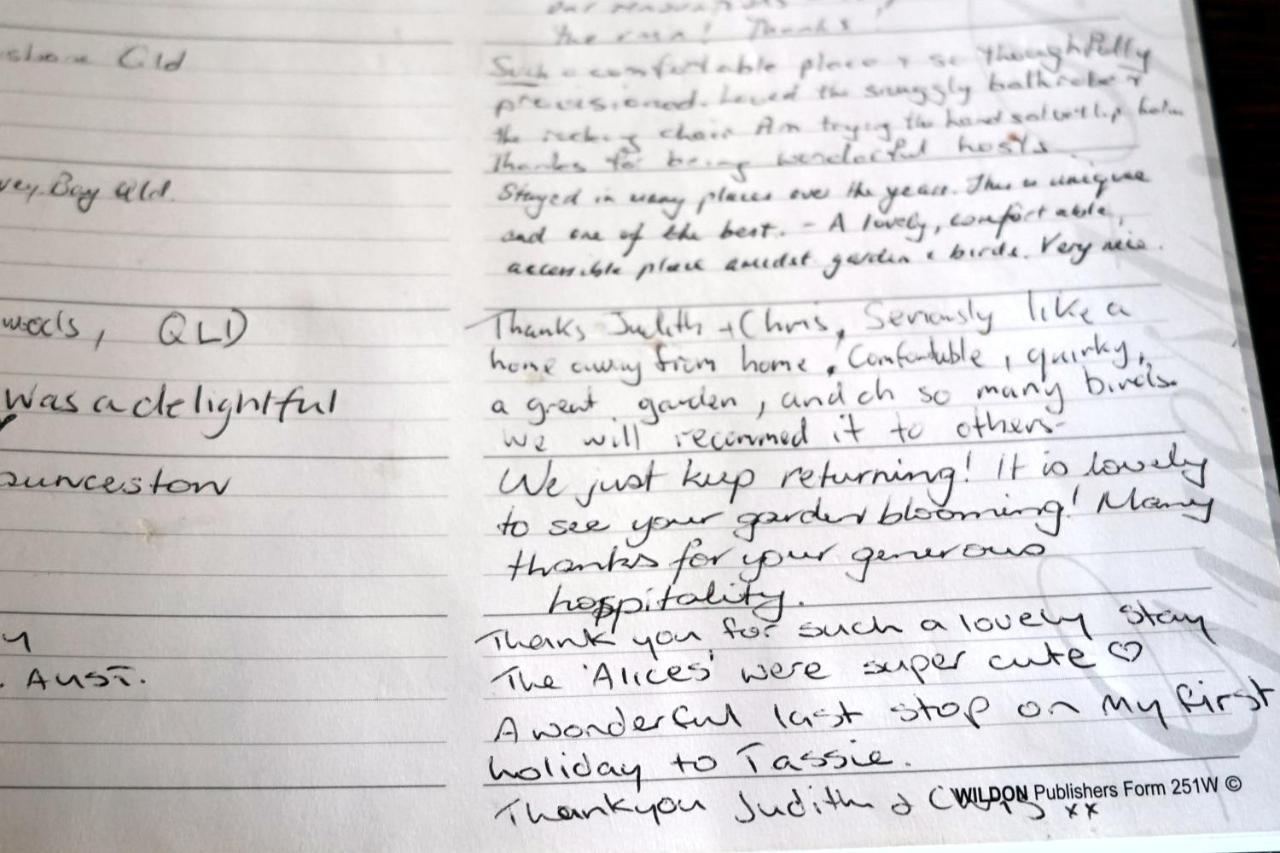 our
the rain! Thanks
Qld
Such a comfortable place & so thoughtfully
provisioned. Loved the snuggly bathrobe &
the rocking chair Am trying the hand salve & lip balm
Thanks for being wonderful hosts
vey Bay Qld.
Stayed in many places over the years. This is unique
and one of the best. - A lovely, comfortable,
accessible place amidst garden & birds. Very nice.
QLD
Thanks Judith + Chris, Seriously like a
home away from home, Comfortable, quirky,
Was a delightful
a great garden, and oh so many birds.
We will recommed it to others-
ounceston
We just keep returning! It is lovely
to see your garden blooming! Many
thanks for your generous
hospitality.
y
Thank you for such a lovely stay
. AUST.
The 'Alices' were super cute ♡
A wonderful last stop on my first
holiday to Tassie.
WILDON Publishers Form 251W ©
Thankyou Judith & Chris xx